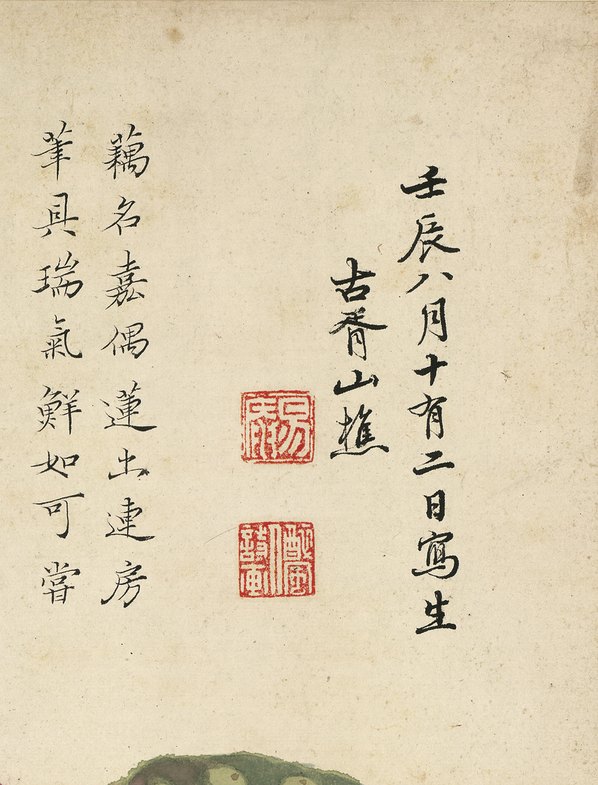 壬辰八月十有二日寫生
古胥山樵
藕名嘉偶蓮出連房
筆具瑞氣鮮如可嘗